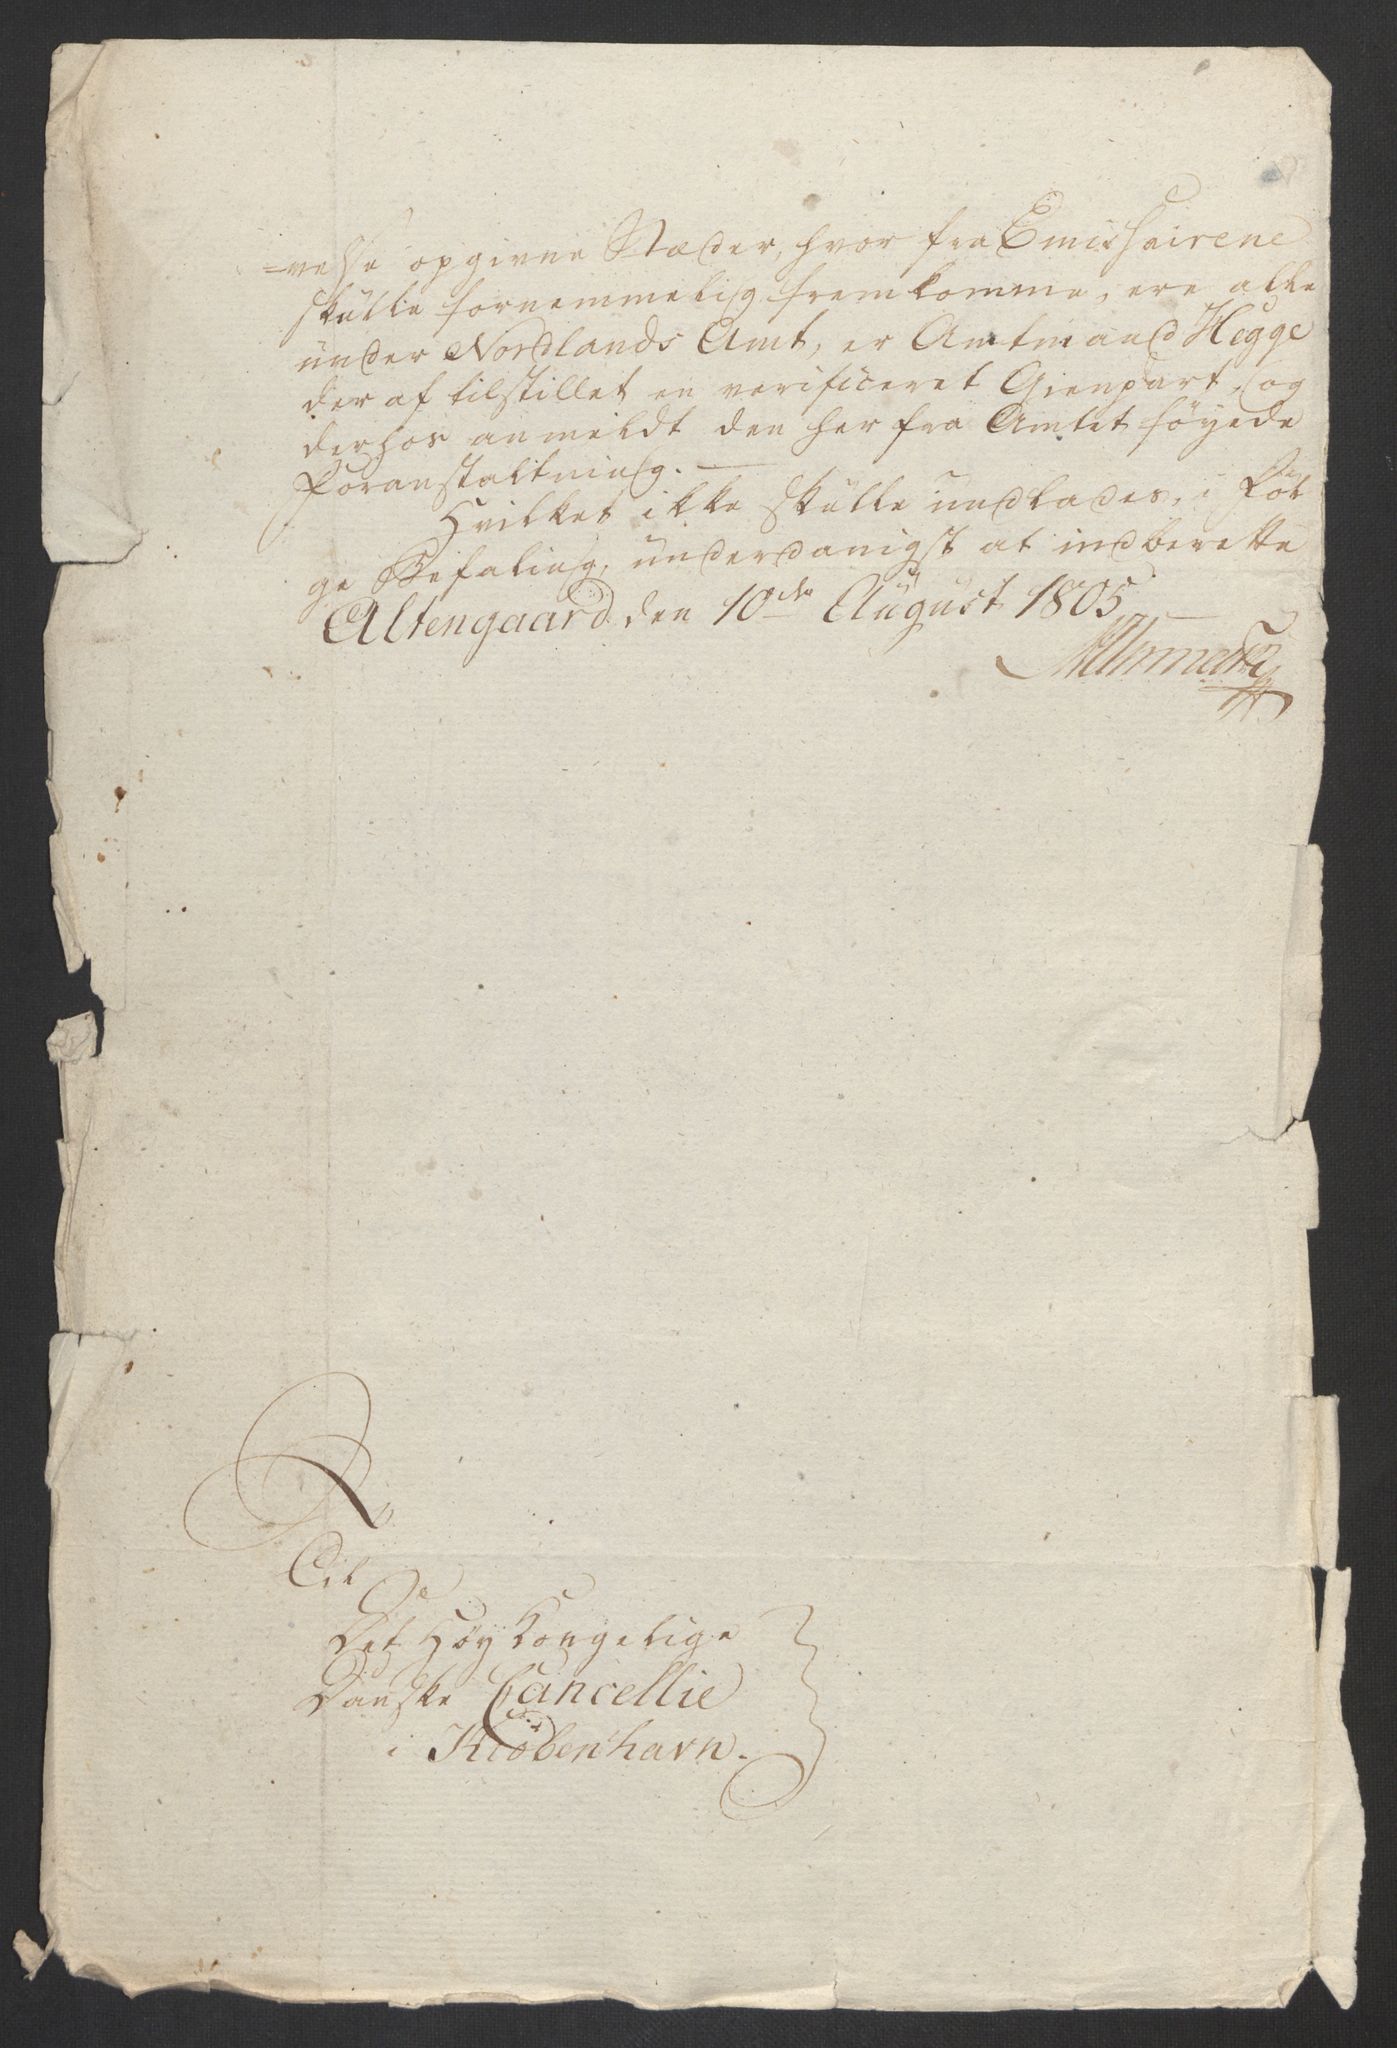 =velse opgivne Stæder, hvor fra Emissairene
skulle fornemmelig fremkomme, ere alle
under Nordlands Amt, er Amtmand Hegge
der af tilstillet en verificeret Gienpart, og
derhos anmeldt den her fra Amtet føyede
Foranstaltning. —
Hvilket ikke skulle undlades, i Føl
ge Befaling, underdanigst at indberette
Altengaard den 10de August 1805
Til
Det Høy Kongelige
Danske Cancellie
i Kiøbenhavn.